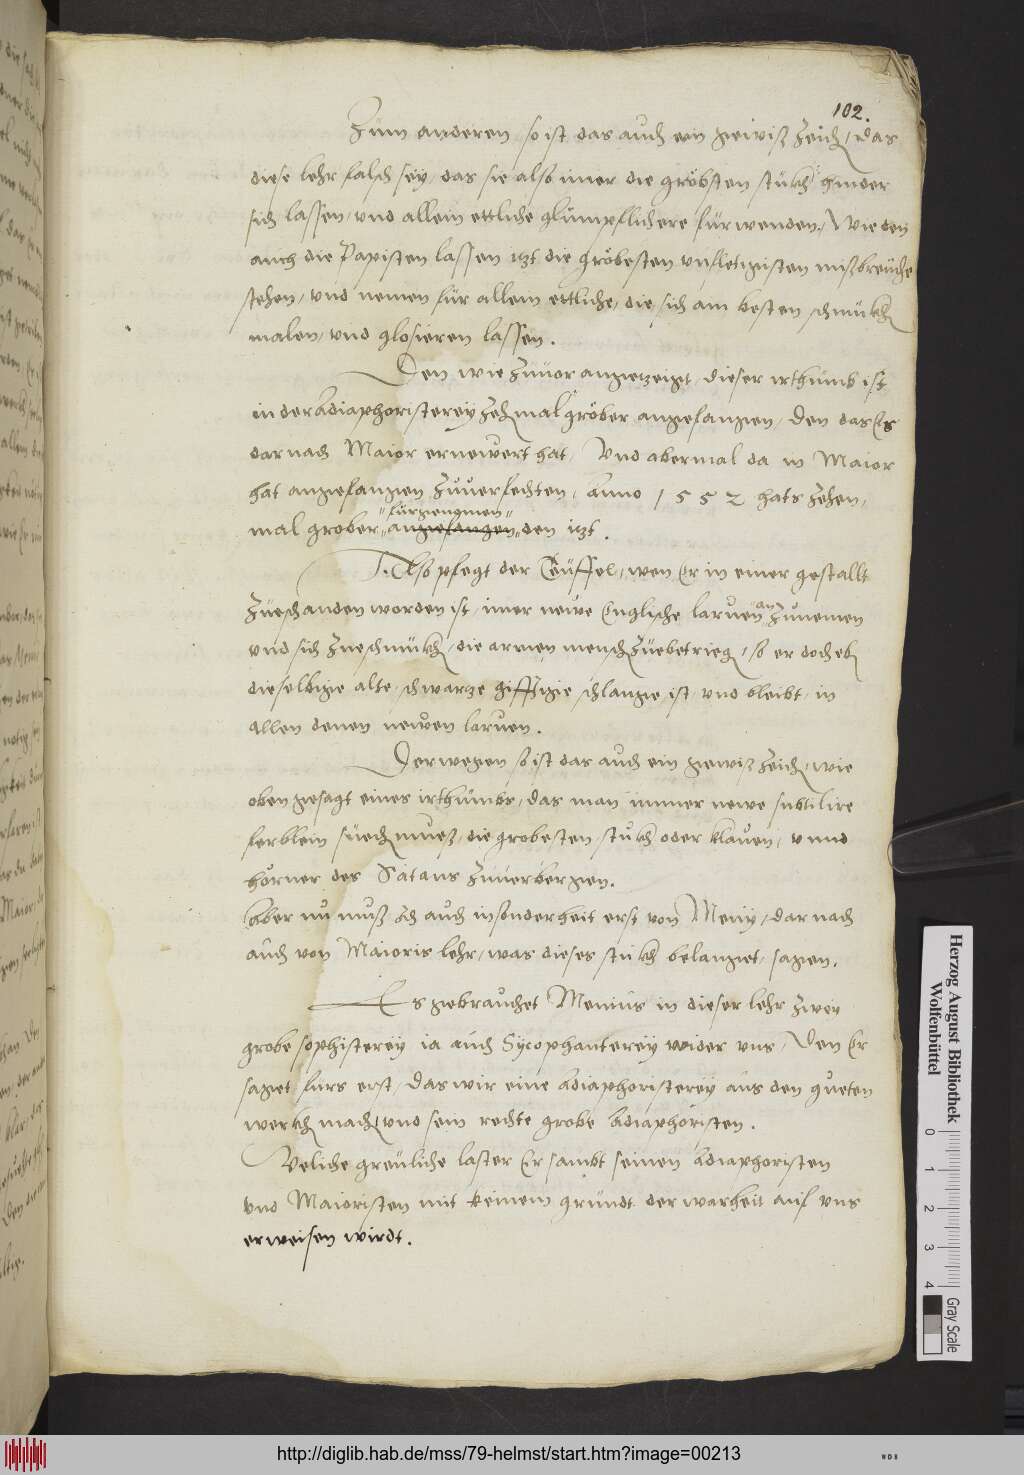 102.
Zum anderen so ist das auch ein gewiß zeich, das
diese lehr falsch sey, das sie also imer die gröbsten stückh hinder
sich lassen, vnd allein ettliche glümpflichere fürwenden, Wie den
auch die Papisten lassen itzt die gröbesten vnfletigisten mißbreüche
stehen, vnd nemen für allein ettliche, die sich am besten schmückh
malen, vnd glosieren lassen.
Den wie zuuor angetzeigt, dieser irthumb ist
in der Adiaphoristerey zehmal gröber angefangen, Den das Es
darnach Maior ernewert hat, Vnd abermal da in Maior
hat angefangen zuuerfechten, Anno 1552 hats zehen,
fürgenomen
mal grober angefangen den itzt.
Also pfegt der Teüffel, wen Er in einer gestallt
züeschanden worden ist, imer newe Englische laruen an zunemen
vnd sich zueschmückh, die armen mensch züebetrieg, so er doch eb
dieselbige alte, schwartze gifftige schlange ist, vnd bleibt, in
allen denen newen laruen.
Derwegen so ist das auch ein gewiß zeich, wie
oben gesagt eines irthumbs, das man immer newe subtilire
ferblein süech mueß, die grobesten stuckh oder klauen, vnnd
hörner des Satans zuuerbergen.
Aber nu muß Ich auch insonderheit erst von Meny, darnach
auch von Maioris lehr, was dieses stuckh belanget, sagen.
Es gebrauchet Menius in dieser lehr zwey
grobe sophisterey ia auch Sycophanterey wider vns, Den Er
saget furs erst, das wir eine Adiaphoristerey aus den gueten
werckh mach, vnd sein rechte grobe Adiaphoristen.
Weliche greüliche laster Er sambt seinen Adiaphoristen
vnd Maioristen mit keinem grundt der warheit auf vns
erweisen wirdt.
Herzog August Bibliothek
Wolfenbüttel
0 1 2 3 4
Gray Scale
http://diglib.hab.de/mss/79-helmst/start.htm?image=00213